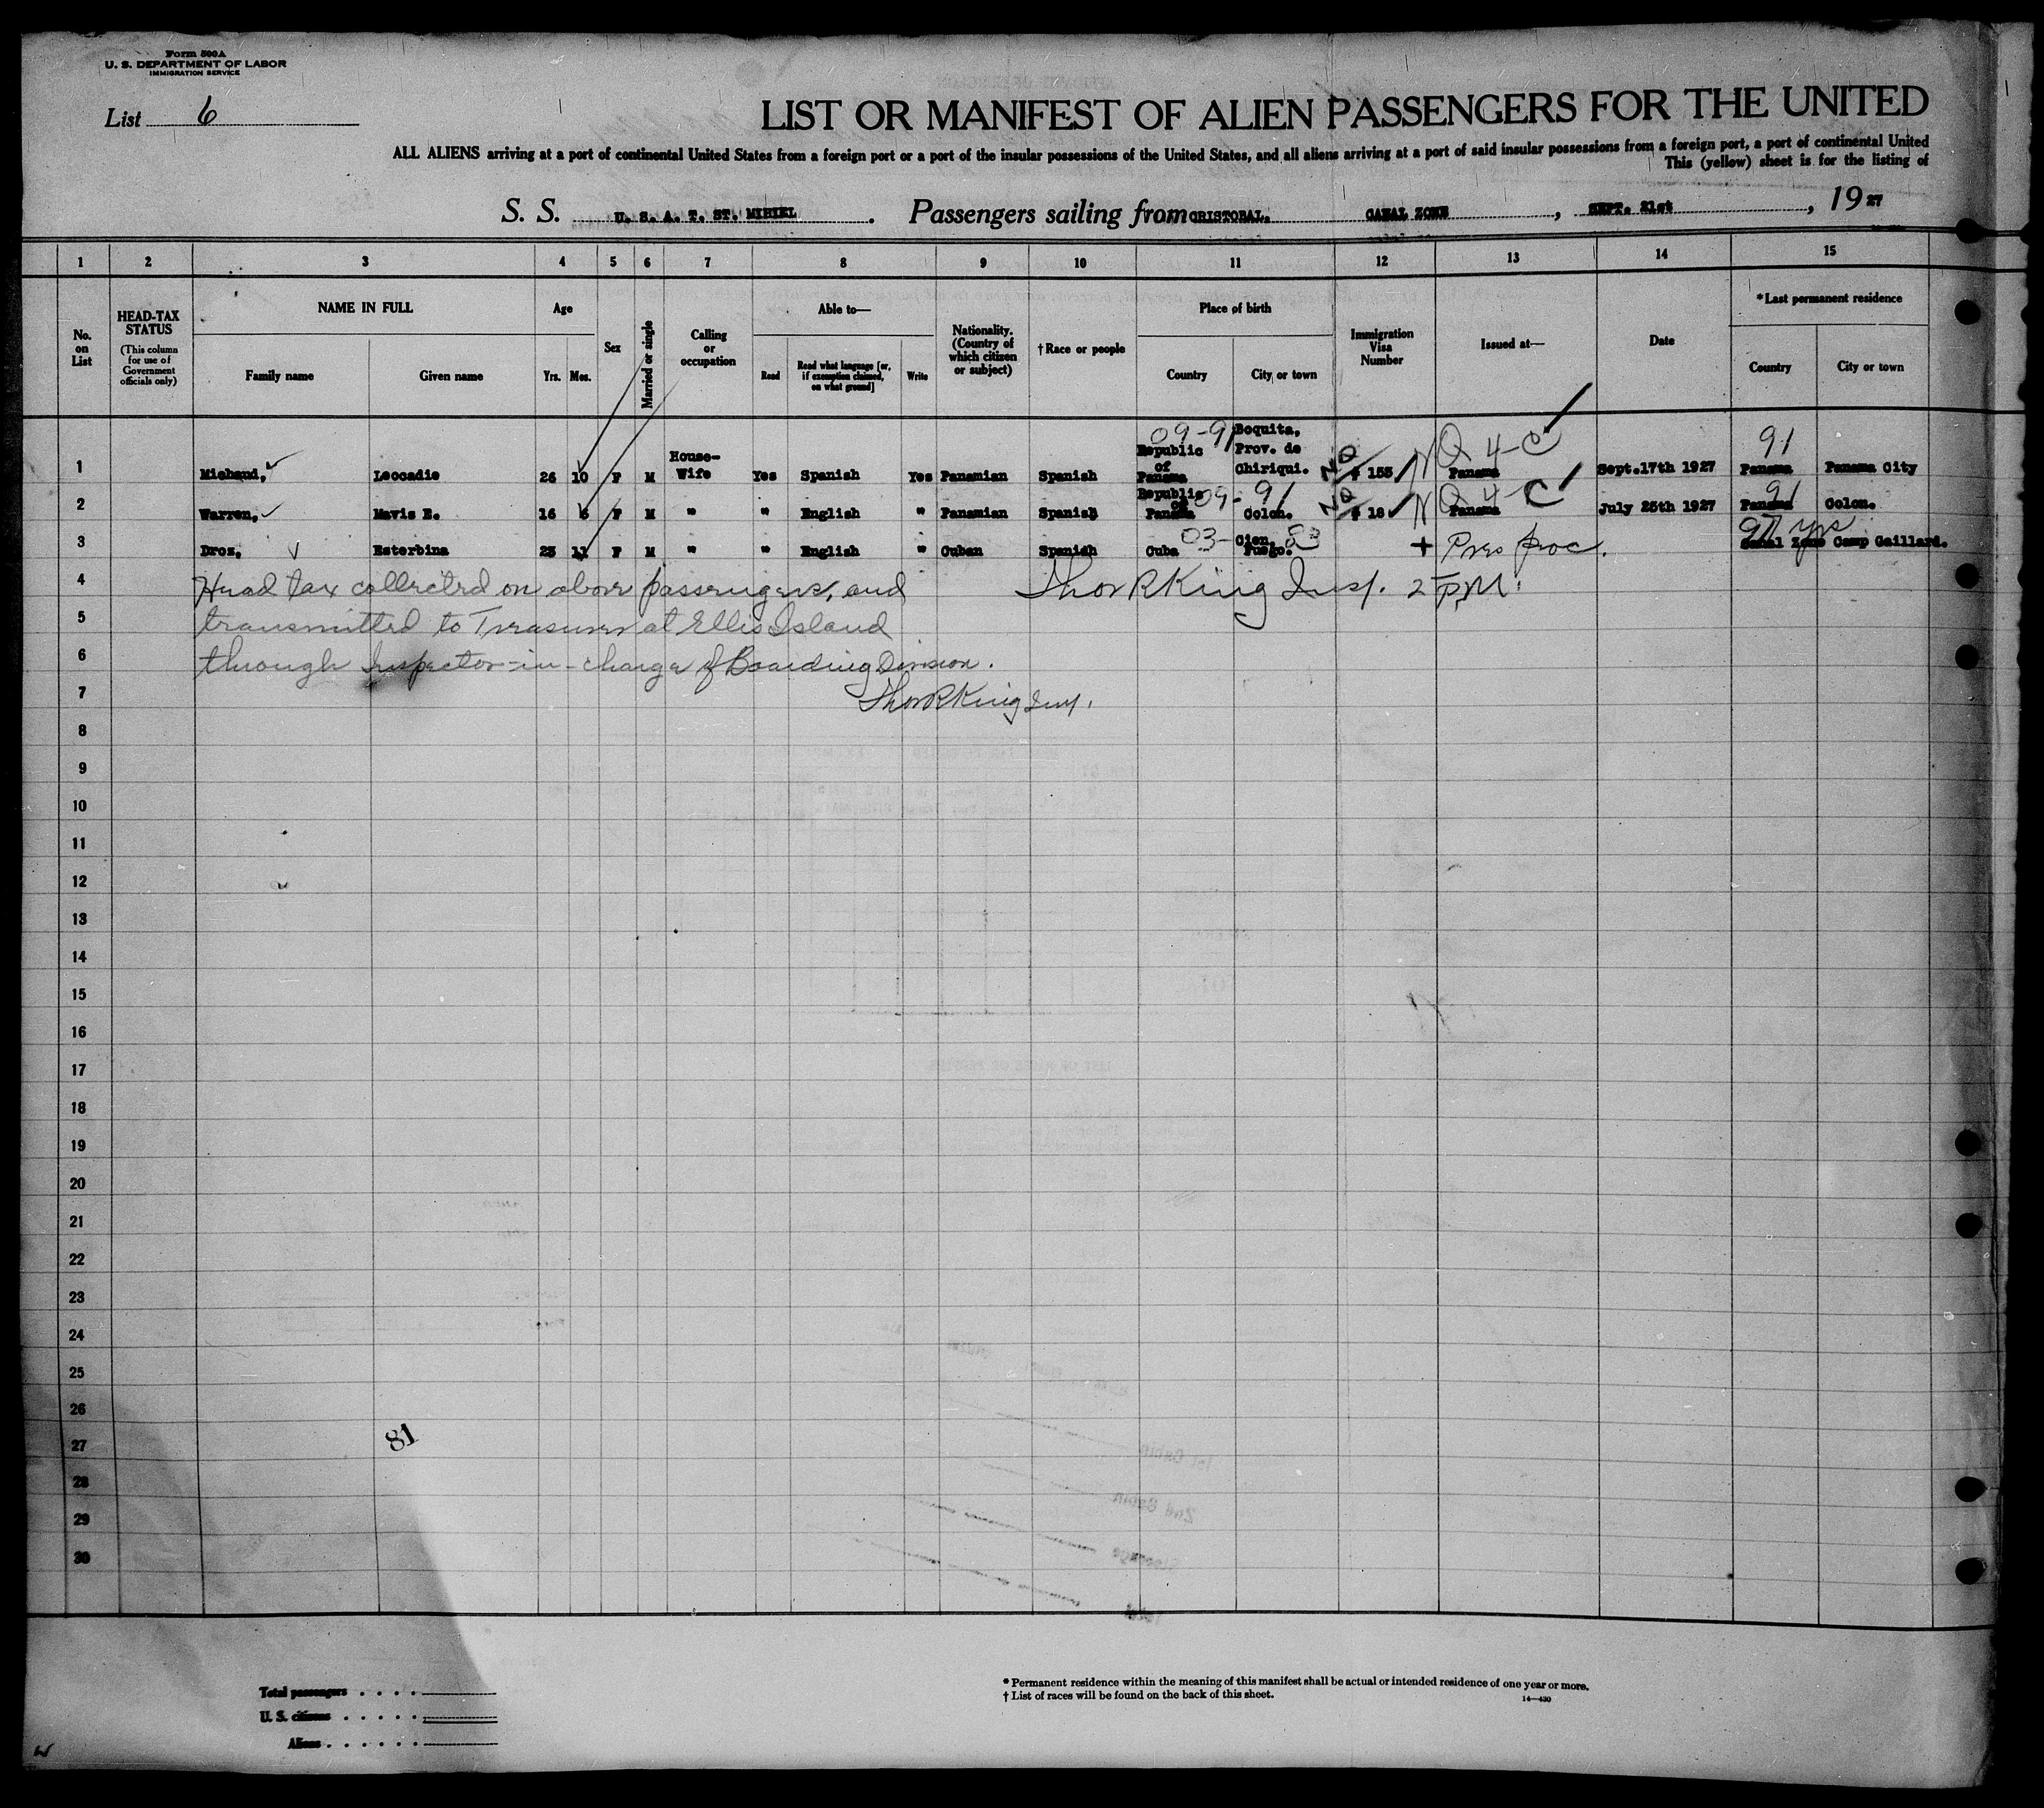 Form 500A
U. S. DEPARTMENT OF LABOR
IMMIGRATION SERVICE
List 6
LIST OR MANIFEST OF ALIEN PASSENGERS FOR THE UNITED
ALL ALIENS arriving at a port of continental United States from a foreign port or a port of the insular possessions of the United States, and all aliens arriving at a port of said insular possessions from a foreign port, a port of continental United
This (yellow) sheet is for the listing of
S. S. U. S. A. T. ST. MIHIEL. Passengers sailing from CRISTOBAL, CANAL ZONE, SEPT. 21st, 1927
1 2 3 4 5 6 7 8 9 10 11 12 13 14 15
No. on List
HEAD-TAX STATUS
(This column for use of Government officials only)
NAME IN FULL
Family name Given name
Age
Yrs. Mos.
Sex
Married or single
Calling or occupation
Able to—
Read
Read what language [or, if exemption claimed, on what ground]
Write
Nationality. (Country of which citizen or subject)
† Race or people
Place of birth
Country City or town
Immigration Visa Number
Issued at—
Date
* Last permanent residence
Country City or town
1 Michaud, Leocadie 26 10 F M House-Wife Yes Spanish Yes Panamian Spanish Republic of Panama 09-91 Boquita, Prov. de Chiriqui. NQ # 155 NQ 4-C Panama Sept.17th 1927 91 Panama Panama City
2 Warren, Mavis E. 16 6 F M " " English " Panamian Spanish Republic of Panama 09-91 Colon. NQ # 18 NQ 4-C Panama July 25th 1927 91 Panama Colon.
3 Droz, Esterbina 23 11 F M " " English " Cuban Spanish Cuba 03-83 Cien Fuego. + Pres proc. 97 yrs Canal Zone Camp Gaillard.
4 Head tax collected on above passengers, and Thor R King Insp. 2 P.M.
5 transmitted to Treasurer at Ellis Island
6 through Inspector-in-charge of Boarding Division.
7 Thor R King Insp.
8
9
10
11
12
13
14
15
16
17
18
19
20
21
22
23
24
25
26
27
81
28
29
30
Total passengers
U. S. citizens
Aliens
* Permanent residence within the meaning of this manifest shall be actual or intended residence of one year or more.
† List of races will be found on the back of this sheet.
14—430